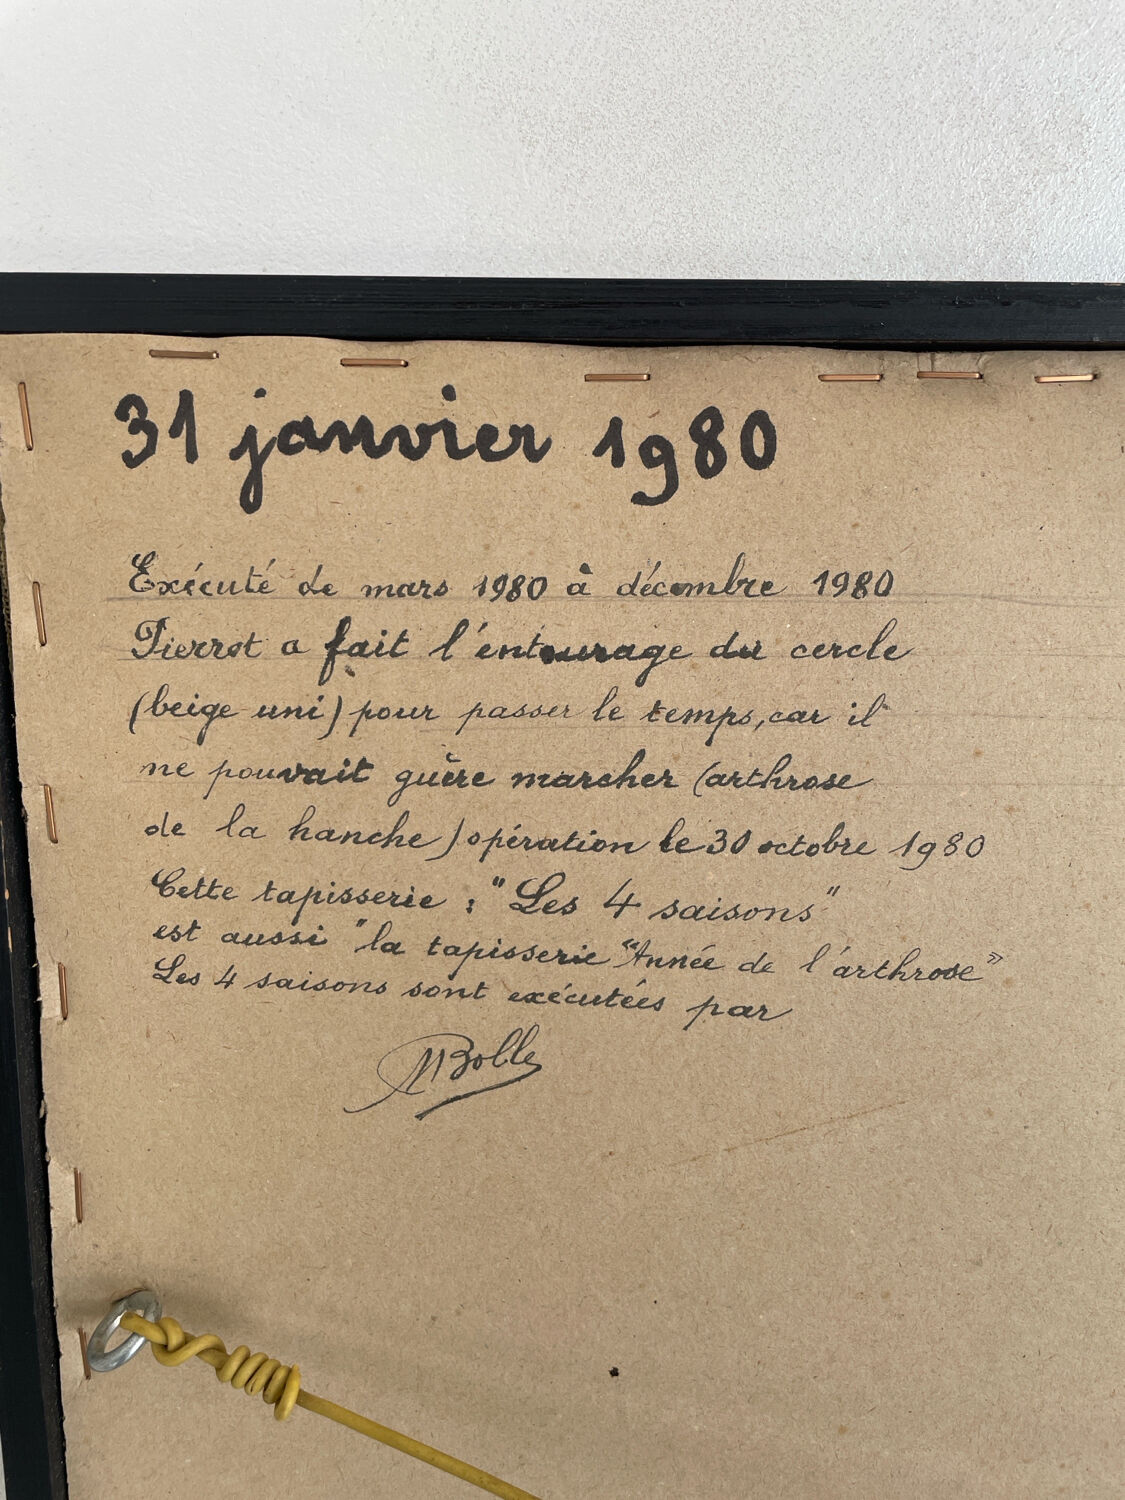 31 janvier 1980
Exécuté de mars 1980 à décembre 1980
Pierrot a fait l'entourage du cercle
(beige uni) pour passer le temps, car il
ne pouvait guère marcher (arthrose
de la hanche) opération le 30 octobre 1980
Cette tapisserie : "Les 4 saisons"
est aussi "la tapisserie "Année de l'arthrose"
Les 4 saisons sont exécutées par
MBolle